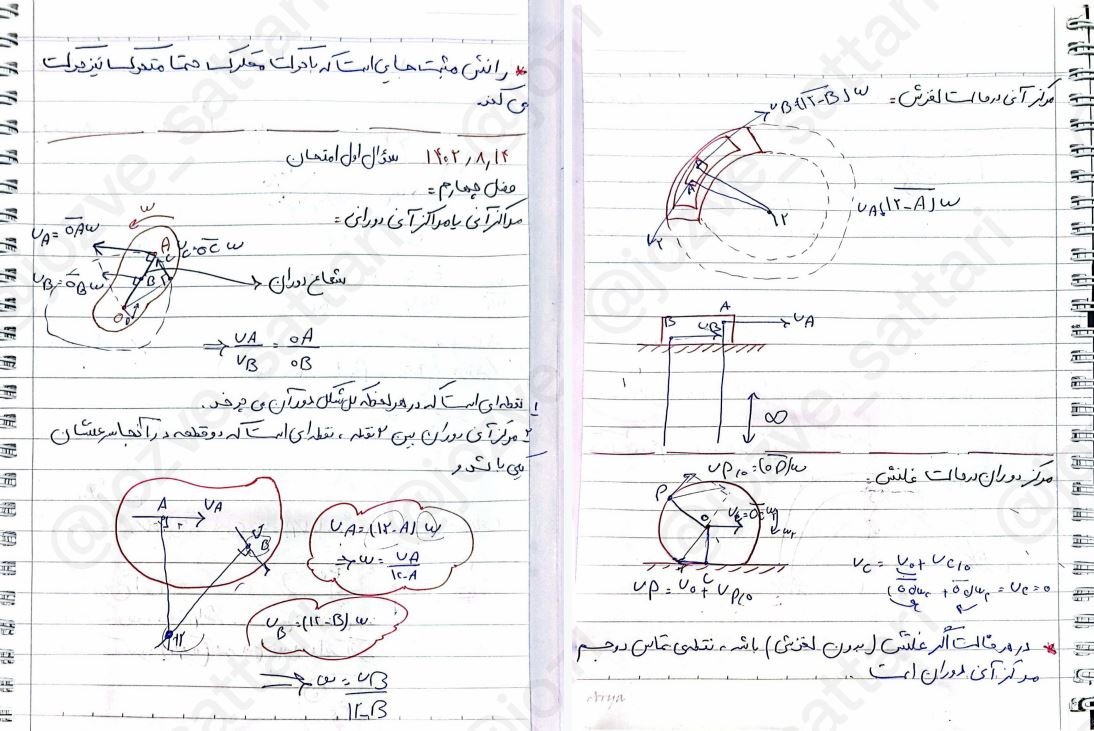 * رانش مثبت جایی است که با حرکت محرک حتما متحرک نیز حرکت
می کند.
۱۴۰۲,۸,۱۴ سؤال اول امتحان
فصل چهارم =
مراکز آنی یا مراکز آنی دورانی =
ω
VA = OA ω
A
C
VC = OC ω
VB = OB ω
B
O
شعاع دوران
⇒ VA / VB = OA / OB
۱ نقطه‌ای است که در هر لحظه کل شکل دور آن می چرخد.
۲ مرکز آنی دوران بین ۲ نقطه، نقطه‌ای است که دو قطعه در آنجا سرعتشان
یکی باشد
A
VA
B
۱۲
VA = (۱۲-A) ω
⇒ ω = VA / ۱۲-A
VB = (۱۲-B) ω
⇒ ω = VB / ۱۲-B
مرکز آنی در حالت لغزش =
VB = (۱۲-B) ω
VA = (۱۲-A) ω
A
۱۲
B
A
VB
VA
∞
مرکز دوران در حالت غلتش =
VP/O = (OP) ω
P
O
C
VP = VO + VP/O
VC = VO + VC/O
= VC = 0
* در هر حالت اگر غلتش (بدون لغزش) باشد، نقطه‌ی تماس دو جسم
مرکز آنی دوران است
Arya
@jozve_sattari